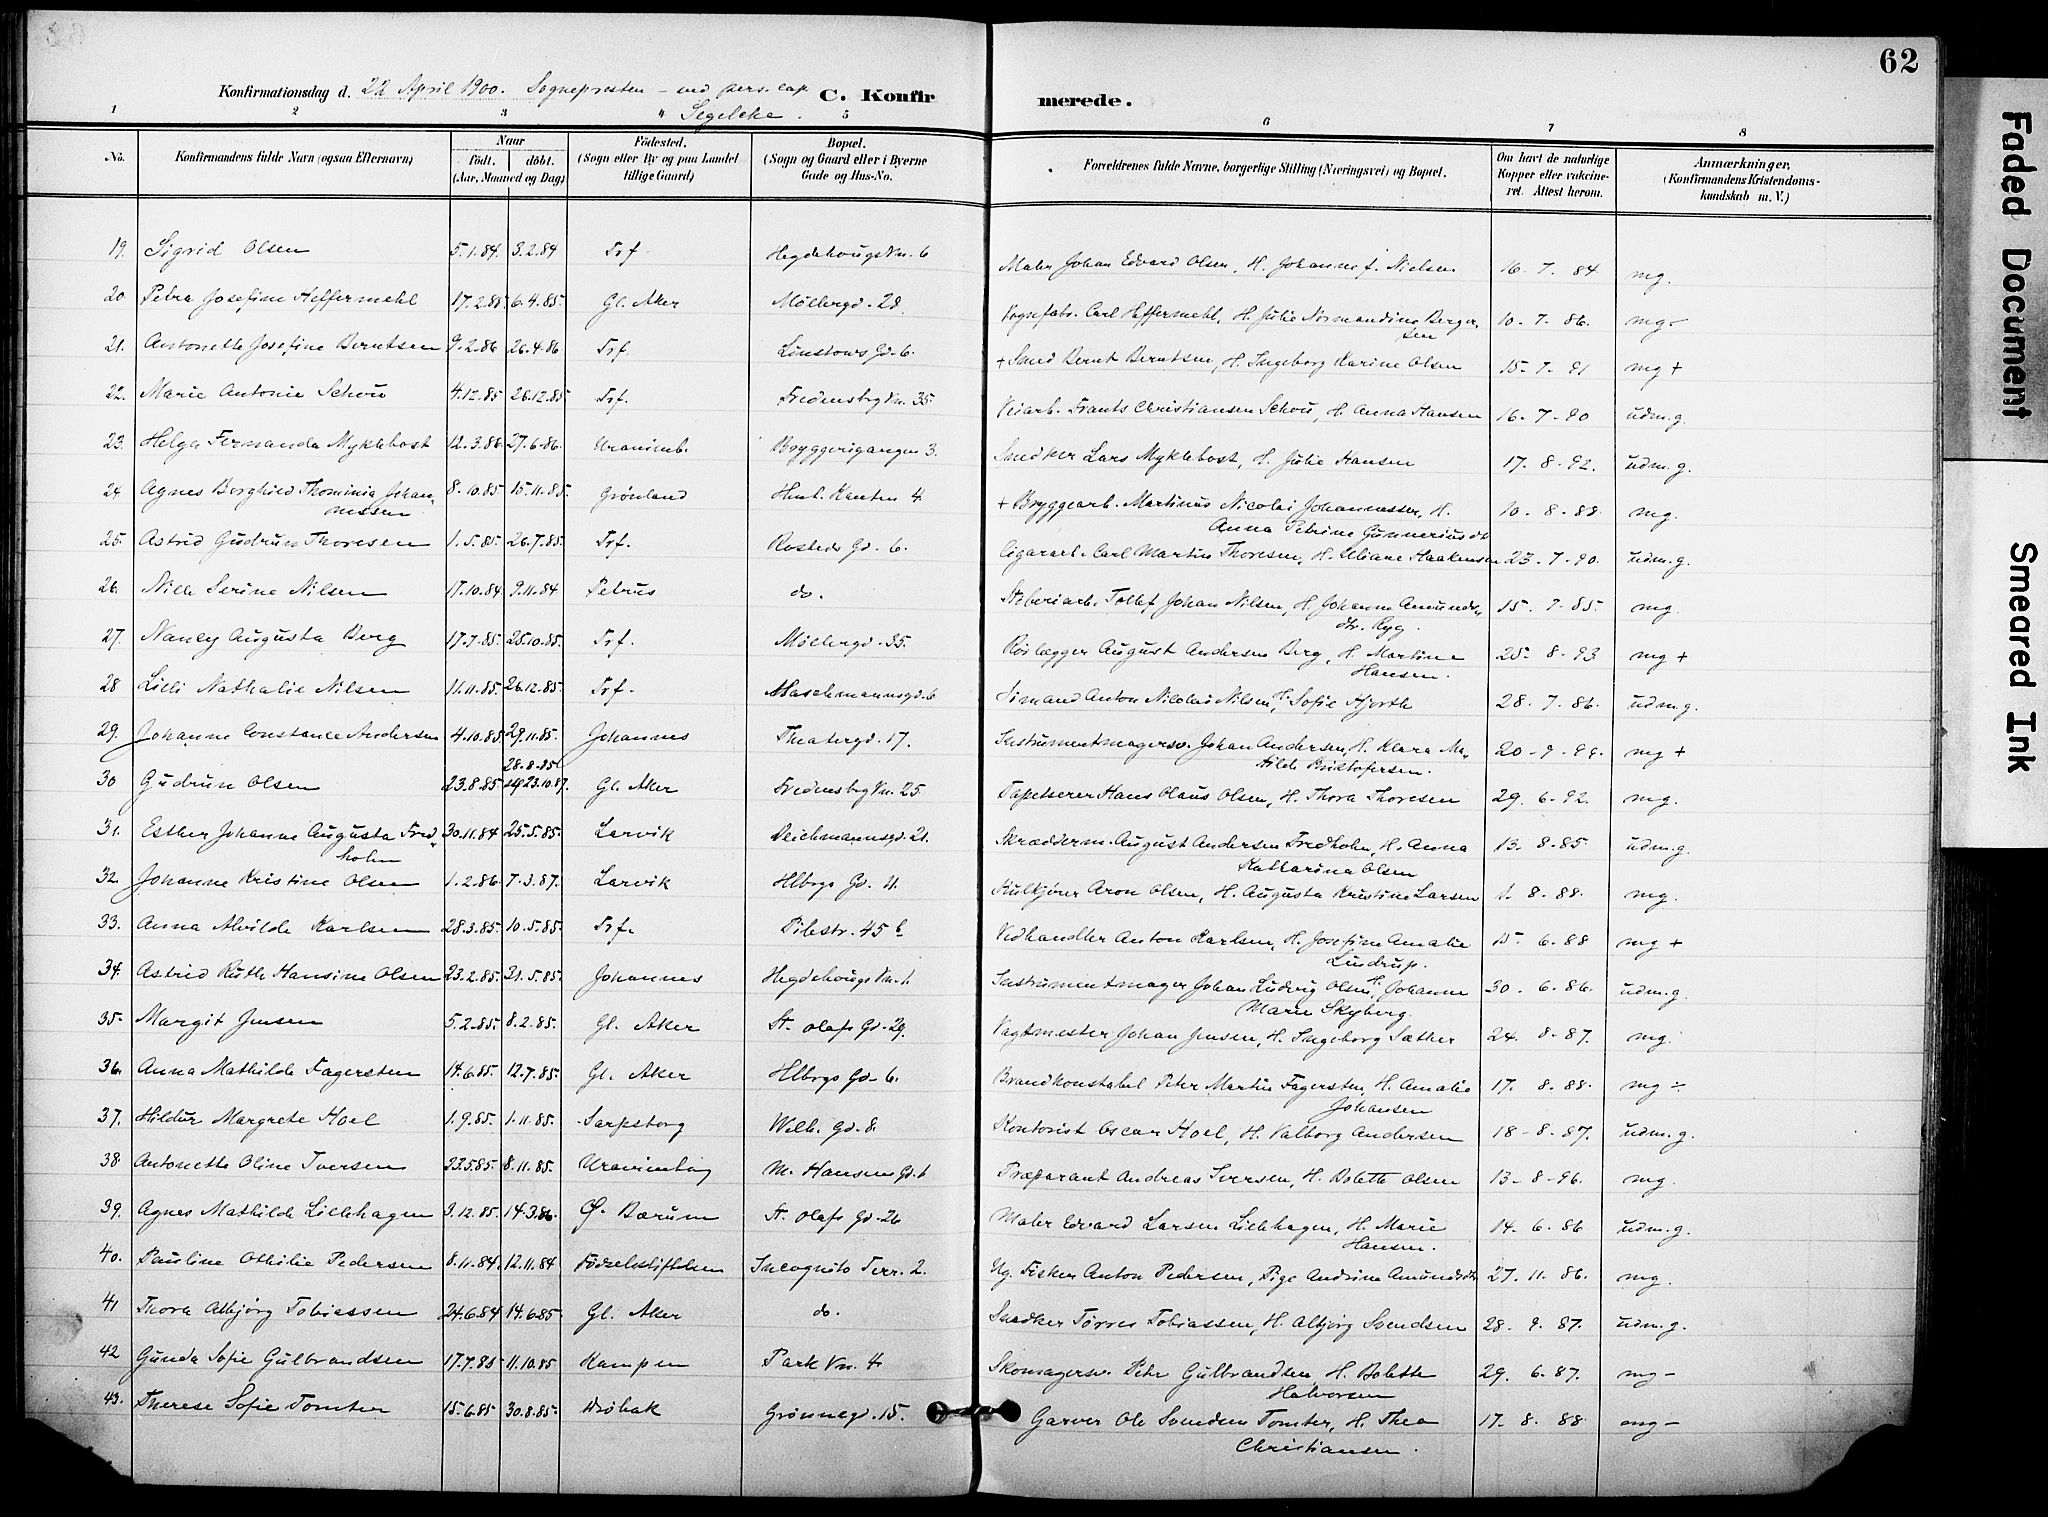 62
Konfirmationsdag d. 22 April 1900. Sognepresten - ved pers. cap. C. Konfirmerede.
" Segelcke.
1 2 3 5 6 7 8
No. Konfirmandens fulde Navn (ogsaa Efternavn) Naar født. døbt. (Aar, Maaned og Dag) Fødested. (Sogn eller By og paa Landet tillige Gaard) Bopæl. (Sogn og Gaard eller i Byerne Gade og Hus-No. Forældrenes fulde Navne, borgerlige Stilling (Næringsvei) og Bopæl. Om havt de naturlige Kopper eller vakcineret. Attest herom. Anmærkninger, (Konfirmandens Kristendomskundskab m. V.)
19. Sigrid Olsen 5.1.84. 3.2.84 Trf. Hegdehougsvn. 6 Maler Johan Edvard Olsen, H. Johanne f. Nielsen 16. 7. 84. mg.
20. Petra Josefine Heffermehl 17.2.85 6.4.85. Gl. Aker Møllergd. 28. Vognfabr. Carl Heffermehl, H. Julie Normandine Bergersen 10. 7. 86. mg-
21. Antonette Josefine Berntsen 9.2.86 26.4.86 Trf. Linstows Gd. 6. + Smed Bernt Berntsen, H. Ingeborg Karine Olsen 15. 7. 91 mg +
22. Marie Antonie Schou 4.12.85 26.12.85 Trf. Fredensbg Vn. 35. Veiarb. Frants Christiansen Schou, H. Anna Hansen 16. 7. 90 udm.g.
23. Helga Fernanda Myklebost 12.3.86. 27.6.86. Uranienb. Bryggerigangen 3. Snedker Lars Myklebost, H. Julie Hansen 17. 8. 92. udm.g.
24. Agnes Borghild Thominia Johannessen 8.10.85 15.11.85. Grønland Hml. Kanten 4. + Bryggearb. Martinus Nicolai Johannessen, H. Anna Petrine Gunneriusdt 10. 8. 88. mg.
25. Astrid Gudrun Thoresen 1.5.85. 26.7.85. Trf. Rosteds Gd. 6. Cigararb. Carl Martin Thoresen, H. Uliane Haakensen 23. 7. 90. udm.g.
26. Nille Serine Nilsen 17.10.84 9.11.84 Petrus do. Støberiarb. Tollef Johan Nilsen, H. Johanne Amundsdtr. Ryg. 15. 7. 85. mg.
27. Nancy Augusta Berg 17.7.85. 25.10.85. Trf. Møllergd. 35. Rørlægger August Andersen Berg, H. Martine Hansen. 25. 8. 93. mg +
28 Lilli Nathalie Nilsen 11.11.85. 26.12.85. Trf. Maschmannsgd. 6 Sømand Anton Nicolai Nilsen, H. Sofie Hjorth 28. 7. 86. udm.g.
29. Johanne Constance Andersen 4.10.85. 29.11.85. Johannes Theatergd. 17. Instrumentmagersv. Johan Andersen, H. Klara Mathilde Kristofersen. 20. 9. 99. mg +
30 Gudrun Olsen 23.8.85. 28.8.85 23.10.87. Gl. Aker Fredensbg Vn. 25. Tapetserer Hans Olaus Olsen, H. Thora Thoresen 29. 6. 92. mg.
31. Esther Johanne Augusta Fredholm 30.11.84 25.5.85. Larvik Deichmannsgd. 21. Skrædderm. August Andersen Fredholm, H. Anna Katharina Olsen 13. 8. 85. udm.g.
32. Johanne Kristine Olsen 1.2.86. 7.3.87. Larvik Hlbrgs Gd. 11. Kulkjører Aron Olsen, H. Augusta Kristine Larsen 1. 8. 88. mg.
33. Anna Alvilde Karlsen 28.3.85. 10.5.85. Trf. Pilestr. 45 b Vedhandler Anton Karlsen, H. Josefine Amalie Lindrup. 15. 6. 88 mg +
34. Astrid Ruth Hansine Olsen 23.2.85. 31.5.85. Johannes Hegdehougs Vn. 1. Instrumentmager Johan Ludvig Olsen, H. Johanne Marie Skyberg. 30. 6. 86. udm.g.
35. Margit Jensen 5.2.85. 8.2.85. Gl. Aker St. Olafs Gd. 29. Vagtmester Johan Jensen, H. Ingeborg Sæther 24. 8. 87. mg.
36. Anna Mathilde Fagersten 14.6.85. 12.7.85. Gl. Aker Hlbrgs Gd. 6. Brandkonstabel Peter Martin Fagersten, H. Amalie Johansen 17. 8. 88. mg ÷
37. Hildur Margrete Hoel 1.9.85. 1.11.85. Sarpsborg Welh. Gd. 8. Kontorist Oscar Hoel, H. Valborg Andersen 18. 8. 87. udm.g.
38 Antonette Oline Iversen 23.5.85. 8.11.85. Uranienborg M. Hansens Gd. 1 Præparant Andreas Iversen, H. Bolette Olsen 13. 8. 96. mg.
39. Agnes Mathilde Lillehagen 3.12.85. 14.3.86. Ø. Bærum St. Olafs Gd. 26 Maler Edvard Larsen Lillehagen, H. Marie Hansen. 14. 6. 86 udm.g.
40. Pauline Othilie Pedersen 8.11.84. 12.11.84 Fødselsstiftelsen Incognito Terr. 2. Ug. Fisker Anton Pedersen, Pige Andrine Amundsdtr 27. 11. 86. mg.
41 Thora Asbjørg Tobiassen 24.6.84 14.6.85. Gl. Aker do. Snedker Tørres Tobiassen, H. Asbjørg Svendsen 28. 9. 87. udm.g.
42 Gunda Sofie Gulbrandsen 17.7.85 11.10.85 Kampen Park Vn. 4. Skomagersv. Peter Gulbrandsen, H. Bolette Halvorsen 29. 6. 87. mg -
43. Therese Sofie Tomter 15.6.85 30.8.85. Drøbak Grønnegd. 15. Garver Ole Svendsen Tomter, H. Thea Christiansen. 17. 8. 88 mg -
Faded Document
Smeared Ink